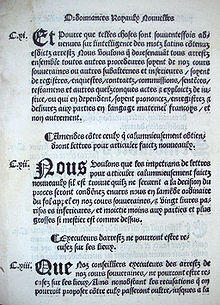 Ordonnances Royaulx Nouvelles
C.xi. Et Pource que telles choses sont souuenteffois ad-
uenues sur lintelligence des motz latins côtenuz
esdictz arrestz. Nous Voulons q̃ doresnauãt tous arrestz
ensemble toutes autres procedures soyent de noz cours
souueraines ou autres subalternes & inferieures, soyent
de registres, enquestes, contractz, commissions, sentẽces,
testamens & autres quelzcõques actes & exploictz de iusti-
ce, ou qui en dependent, soyent prononcez, enregistrez &
deliurez aux parties en langage maternel françoys, et
non autrement.
Amendes côtre ceulx q̃ calumnieusement obtien-
dront lettres pour articuler faictz nouueaulx.
C.xii. Nous Voulons que les impetrans de lettres
pour articuler calumnieusement faictz
nouueaulx sil est trouué quilz ne seruent a la decision du
proces seront condẽnez enuers nous en lamẽde ordinaire
du fol apel, en noz cours souueraines, & Vingt liures pari-
sis es inferieures, et moictie moins aux parties et plus
grosses si mestier est comme dessus.
Executeurs darrestz ne pourront estre re-
cusez sur les lieux.
C.xiii. Que Noz conseilliers executeurs des arrestz de
noz cours souueraines, ne pourront estre re-
cusez sur les lieux. Ains nonobstant les recusations q̃ on
pourroit proposer côtre eulx passeront oultre, iusques a la